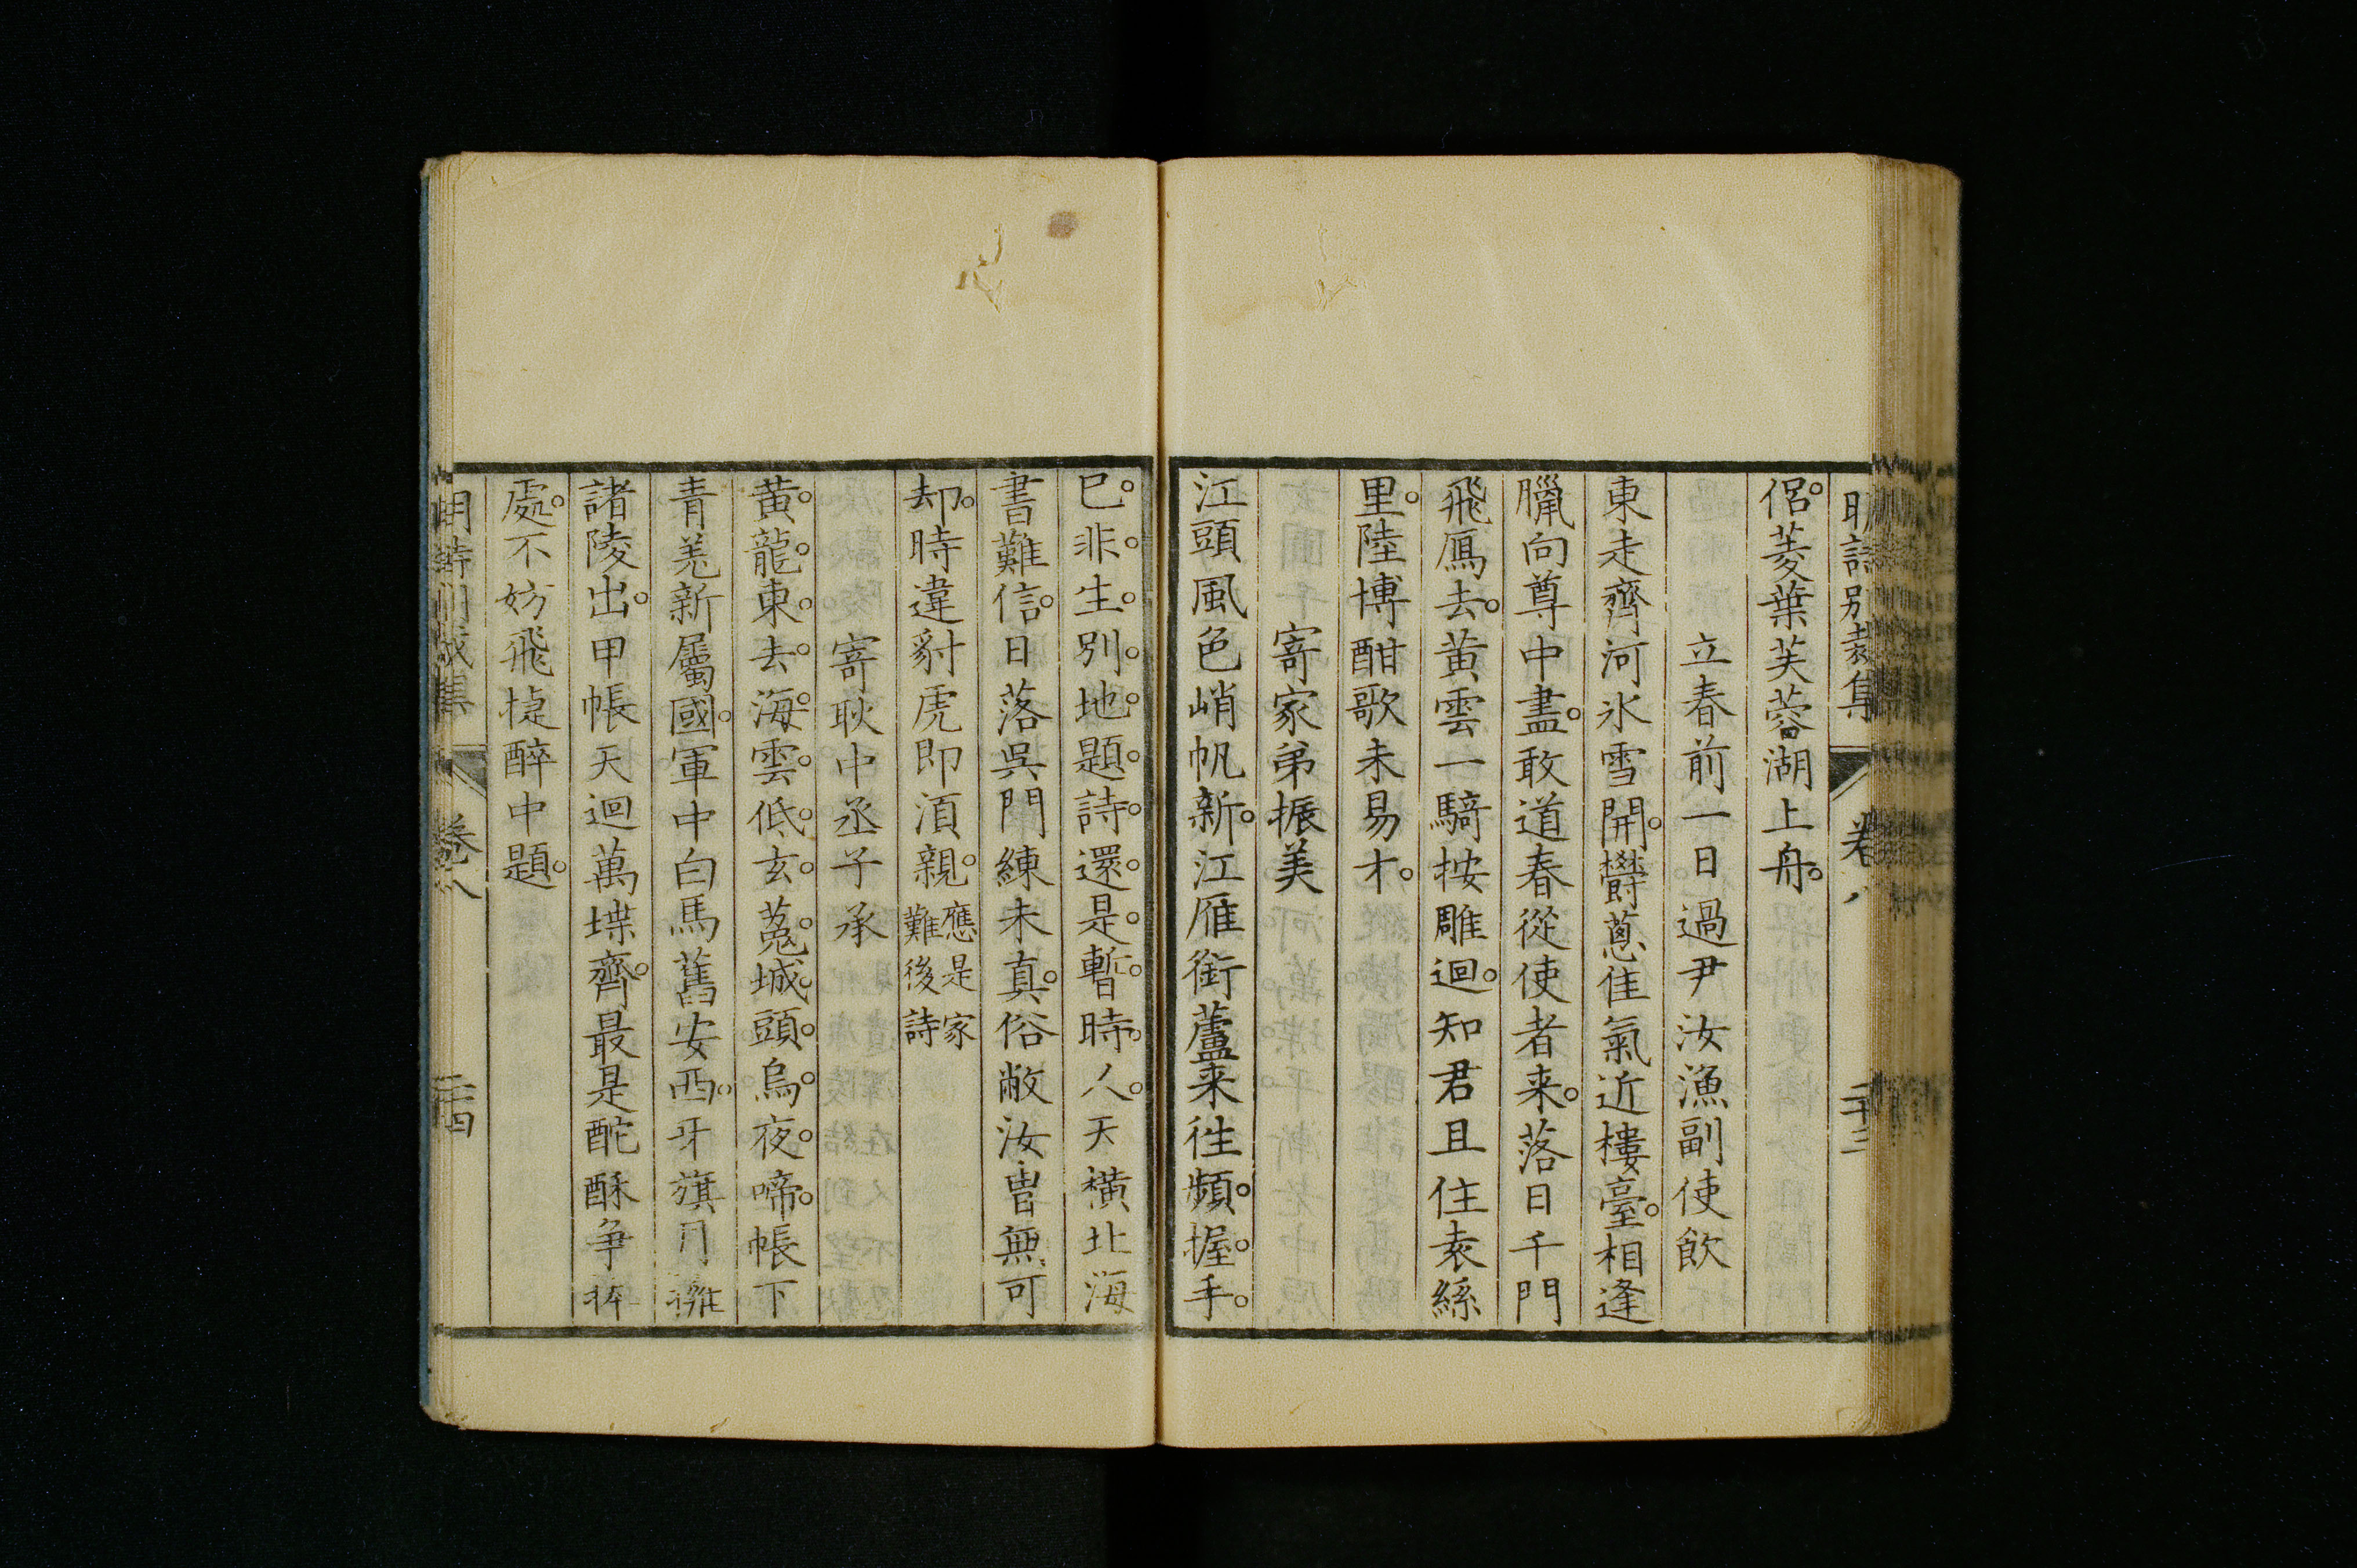 明詩別裁集 卷八 二十三
侶菱葉芙蓉湖上舟
立春前一日過尹汝漁副使飲
東走齊河氷雪開欝蔥佳氣近樓臺相逢
臘向尊中盡敢道春從使者来落日千門
飛鴈去黄雲一騎按雕迴知君且住袁絲
里陸博酣歌未易才
寄家弟振美
江頭風色峭帆新江雁銜蘆来徃頻握手
已非生別地題詩還是暫時人天橫北海
書難信日落吳門練未真俗敝汝曺無可
却時違豺虎即湏親應是家難後詩
寄耿中丞子承
黄龍東去海雲低玄菟城頭烏夜啼帳下
青羌新屬國軍中白馬舊安西牙旗月擁
諸陵出甲帳天迴萬堞齊最是酡酥争捧
處不妨飛㨗醉中題
明詩別裁集 卷八 二十四